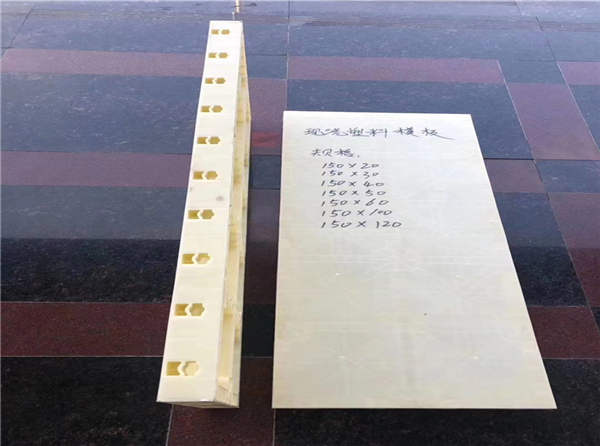 现浇塑料模板
规格:
150×20
150×30
150×40
150×50
150×60
150×100
150×120